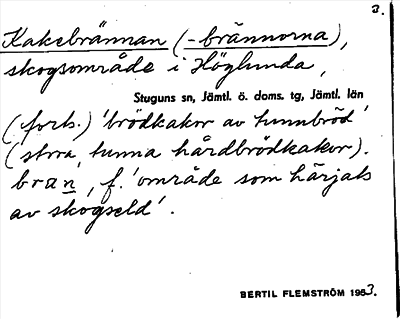 3.
Kakebrännan (-brännorna),
skogsområde i Höglunda,
Stuguns sn, Jämtl. ö. doms. tg, Jämtl. län
(forts.) 'brödkakor av tunnbröd'
(stora, tunna hårdbrödkakor).
bran, f. 'område som härjats
av skogseld'.
BERTIL FLEMSTRÖM 1963.